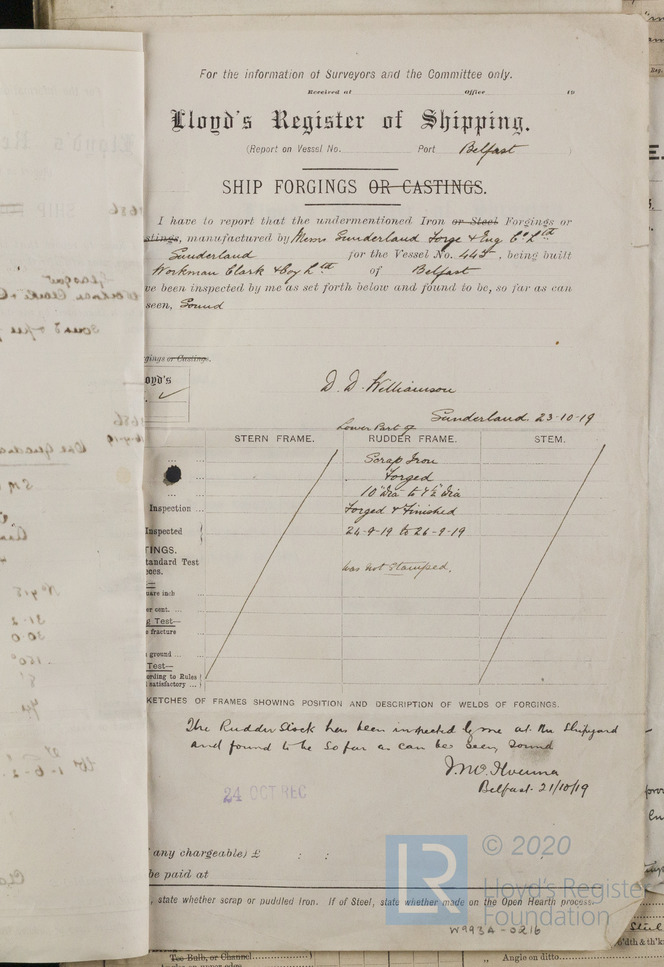 For the information of Surveyors and the Committee only.
Received at Office 19
Lloyd's Register of Shipping.
(Report on Vessel No. Port Belfast )
SHIP FORGINGS OR CASTINGS.
I have to report that the undermentioned Iron or Steel Forgings or
stings, manufactured by Messrs Sunderland Forge & Eng Co Ltd
Sunderland for the Vessel No. 445, being built
Workman Clark & Coy Ltd of Belfast
ve been inspected by me as set forth below and found to be, so far as can
seen, Sound
gings or Castings.
loyd's
D. D. Williamson
Sunderland 23-10-19
Lower Part of
STERN FRAME. RUDDER FRAME. STEM.
Scrap Iron
Forged
Inspection Forged & Finished
Inspected 24-9-19 to 26-9-19
TINGS.
tandard Test
eces. was not stamped.
uare inch
er cent.
g Test—
e fracture
ground
Test—
ording to Rules
satisfactory
KETCHES OF FRAMES SHOWING POSITION AND DESCRIPTION OF WELDS OF FORGINGS.
The Rudder Stock has been inspected by me at the Shipyard
and found to be so far as can be seen sound
Belfast 21/10/19
24 OCT REC
any chargeable) £ : :
be paid at
, state whether scrap or puddled Iron. If of Steel, state whether made on the Open Hearth process.
LR
© 2020
Lloyd's Register
Foundation
W993A-0216
Tee Bulb, or Channel
Angle on ditto